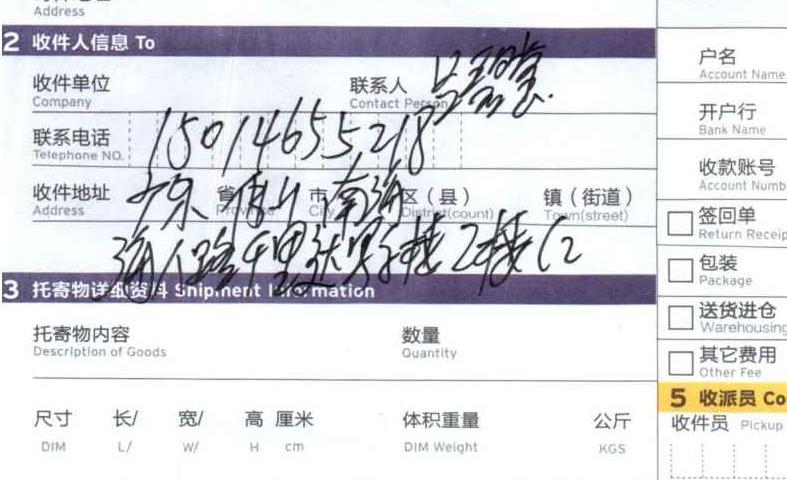 Address
2 收件人信息 To
收件单位
Company
联系人
Contact Person
联系电话
Telephone NO.
15014655218
收件地址
Address
广东 省 佛山 市 南海 区（县） 镇（街道）
Province City District(count) Town(street)
3 托寄物详细资料 Shipment Information
托寄物内容
Description of Goods
数量
Quantity
尺寸 长/ 宽/ 高 厘米
DIM L/ W/ H cm
体积重量 公斤
DIM Weight KGS
户名
Account Name
开户行
Bank Name
收款账号
Account Numb
签回单
Return Receip
包装
Package
送货进仓
Warehousing
其它费用
Other Fee
5 收派员 Co
收件员 Pickup